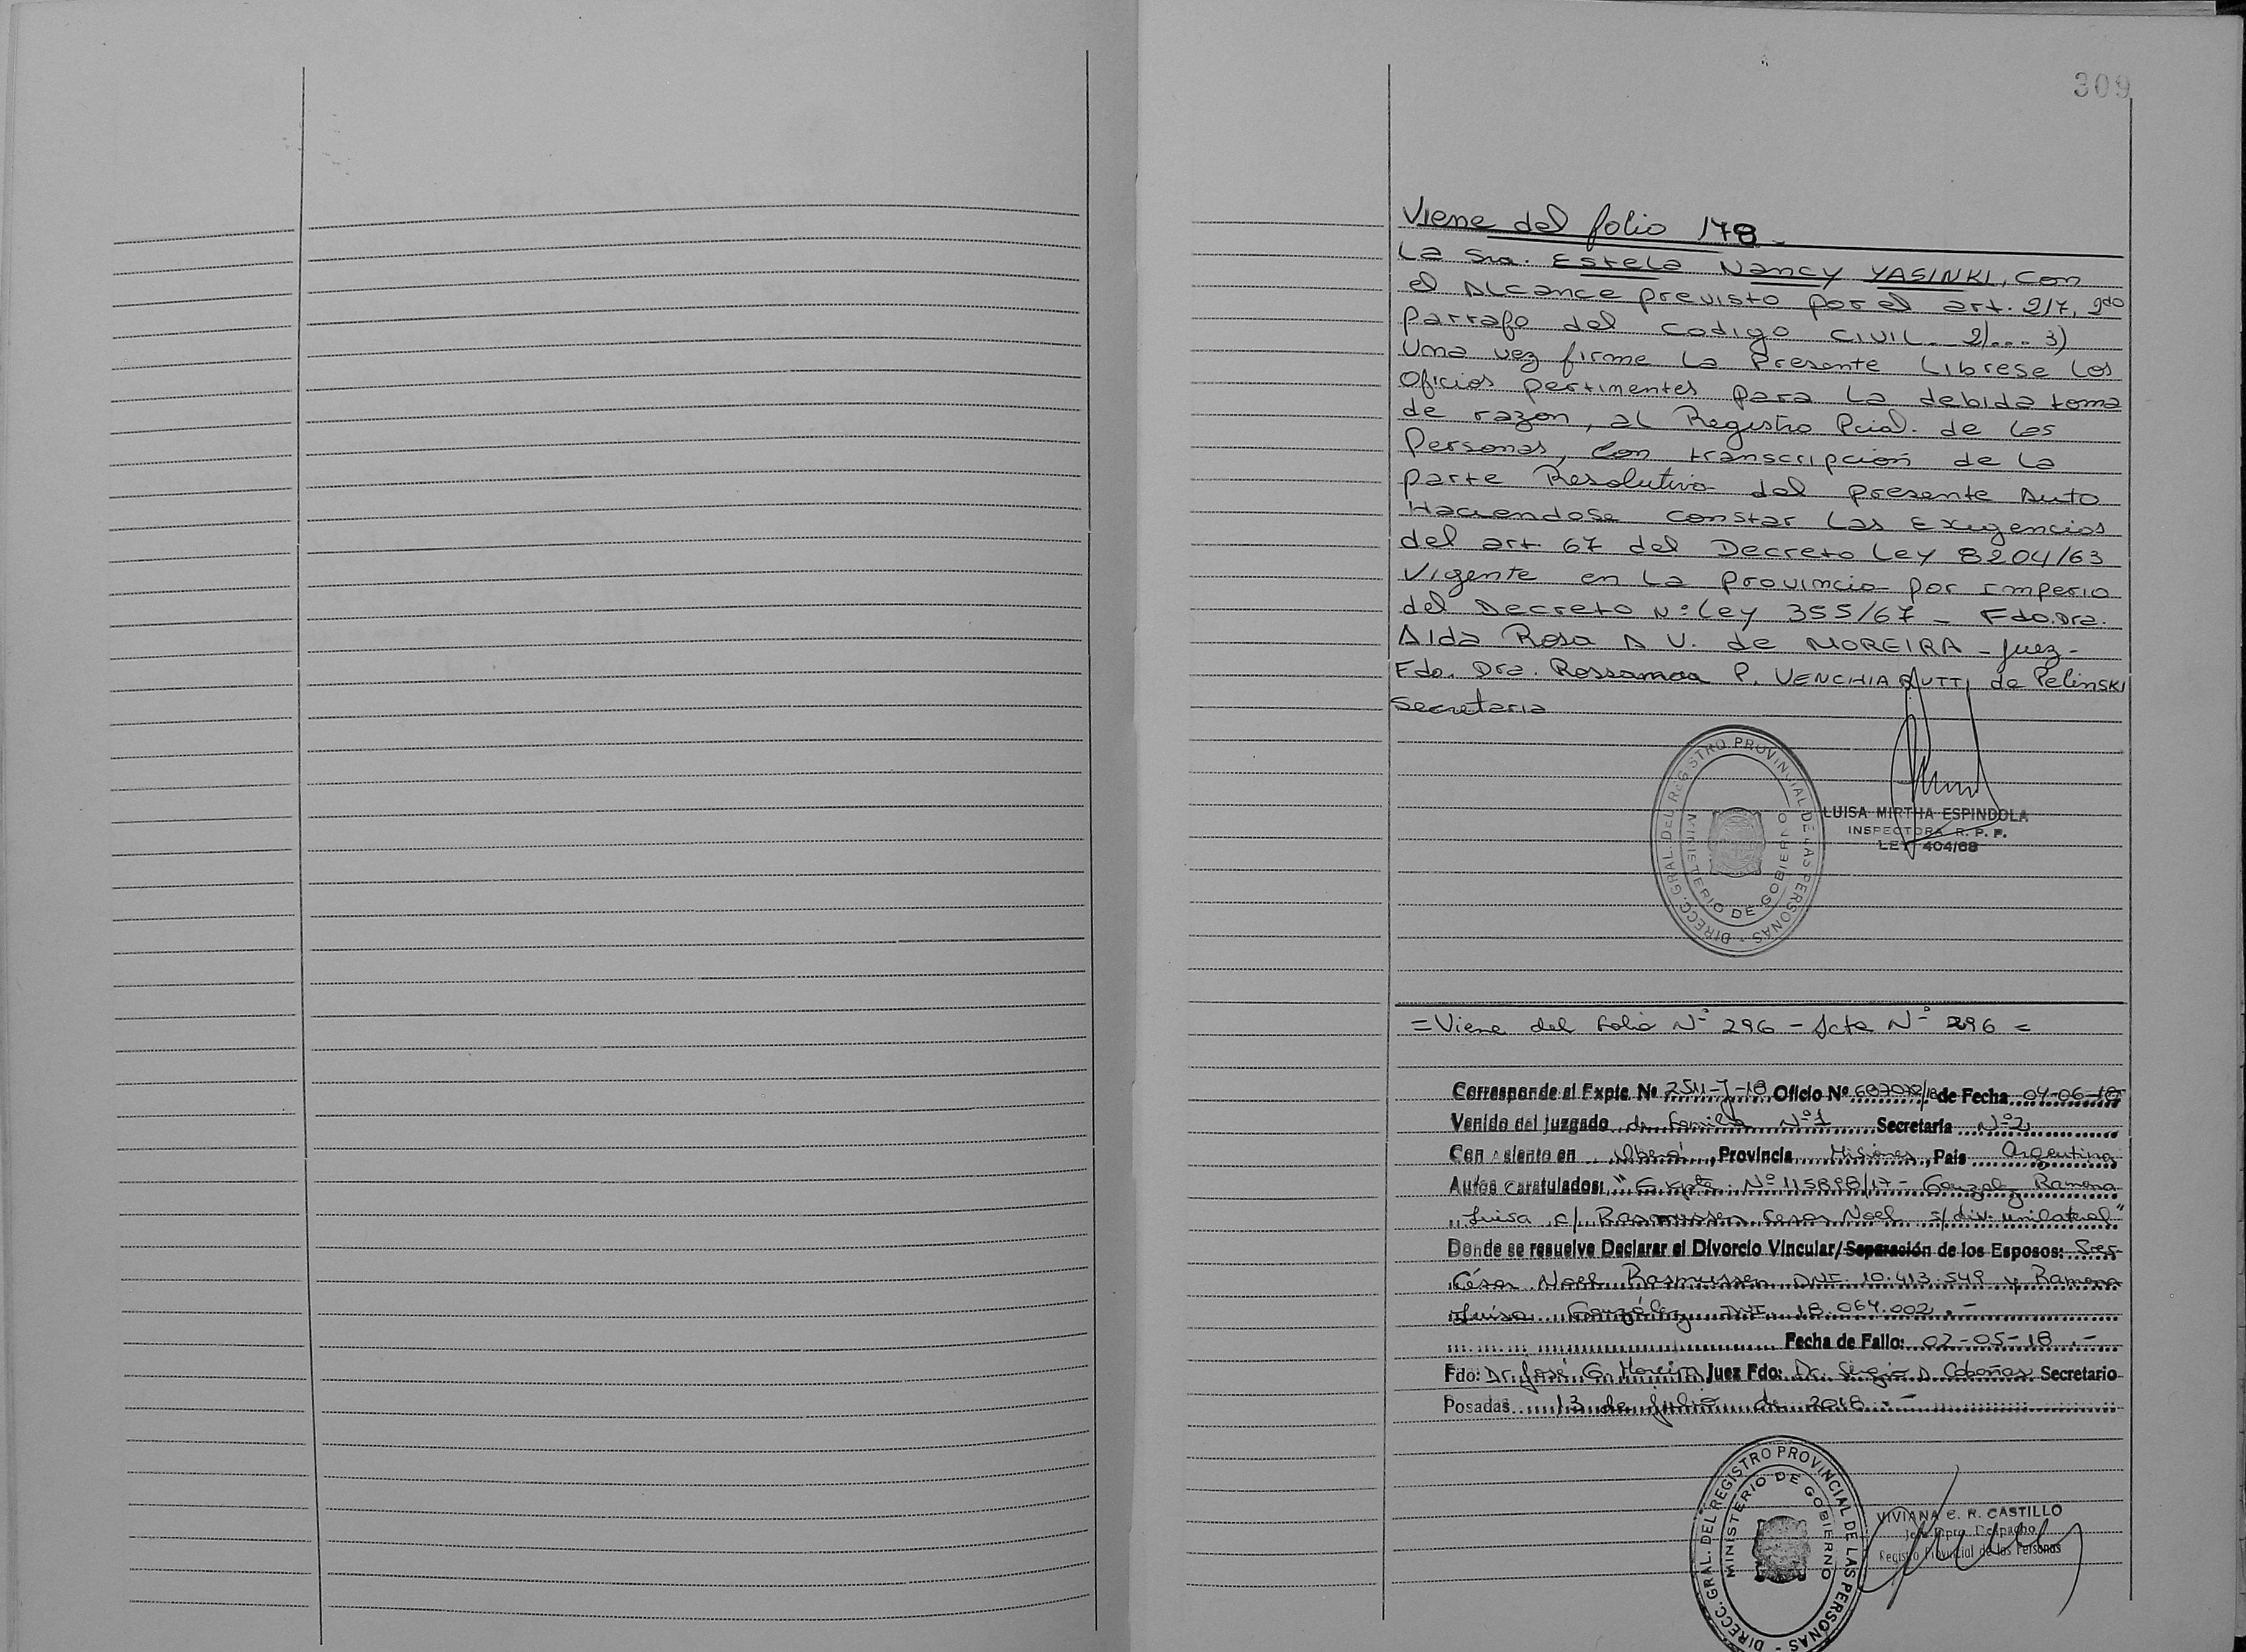 309
Viene del folio 178 -
La Sra. Estela Nancy YASINKI, con
el Alcance previsto por el art. 217, 2do
Parrafo del Codigo Civil.- 2)... 3)
Una vez firme la Presente Librese los
Oficios pertinentes para la debida toma
de razon, al Registro Pcial. de las
Personas, con transcripcion de la
parte Resolutiva del presente Auto
Haciendose constar las Exigencias
del art. 67 del Decreto Ley 8204/63
Vigente en la provincia por imperio
del Decreto Nº Ley 355/67 - Fdo. Dra.
Aida Rosa A V. de MOREIRA - Juez -
Fdo. Dra. Rossanna P. VENCHIARUTTI de Pelinski
Secretaria
DIRECC. GRAL. DEL REGISTRO PROVINCIAL DE LAS PERSONAS -
MINISTERIO DE GOBIERNO
LUISA MIRTHA ESPINDOLA
INSPECTORA R. P. P.
LEY 404/68
= Viene del folio Nº 296 - Acta Nº 296 =
Corresponde al Expte. Nº 2511-J-18 Oficio Nº /18 de Fecha 04-06-18
Venido del juzgado de Familia Nº 1 Secretaría Nº 2
Con asiento en Oberá, Provincia Misiones, País Argentina
Autos caratulados: "Expte. Nº 115898/17 - Gonzalez Ramona
Luisa c/ Rasmussen Cesar Noel s/ div. unilateral"
Donde se resuelve Declarar el Divorcio Vincular/Separación de los Esposos: Sres
César Noel Rasmussen DNI. 10.413.549 y Ramona
Luisa González DNI. 18.064.002.-
Fecha de Fallo: 02-05-18.-
Fdo: Dr. José G. Moreira Juez Fdo: Dr. Sergio D. Cabañas Secretario
Posadas 13 de Julio de 2018.-
DIRECC. GRAL. DEL REGISTRO PROVINCIAL DE LAS PERSONAS -
MINISTERIO DE GOBIERNO
VIVIANA C. R. CASTILLO
Jefa Dpto. Despacho
Registro Provincial de las Personas